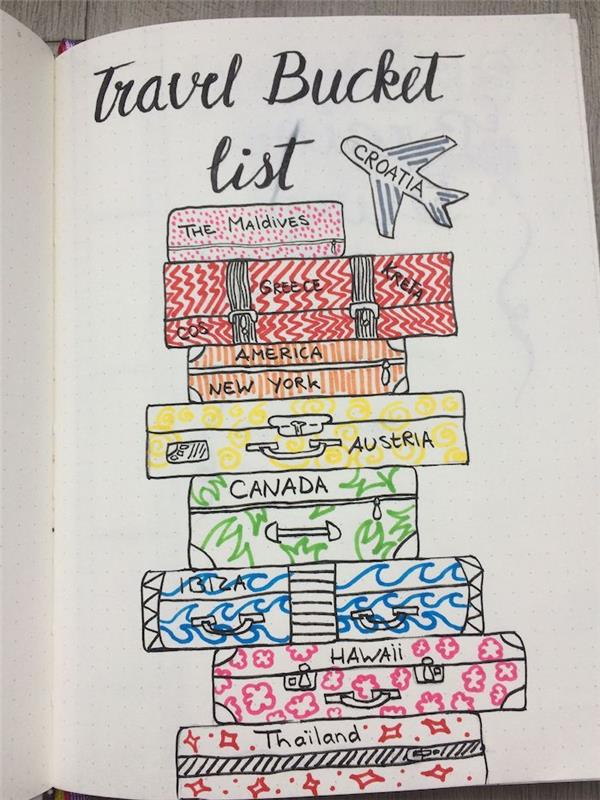 Travel Bucket
list
CROATIA
THE MALDIVES
GREECE KRETA
COS
AMERICA
NEW YORK
AUSTRIA
CANADA
IBIZA
HAWAii
Thailand